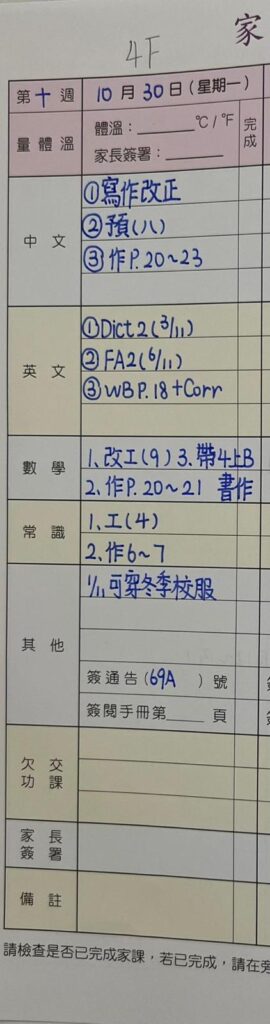 家
4F
第十週 10月30日(星期一)
量體溫 體溫：______°C/°F 完成
家長簽署：______
中文 ①寫作改正
②預(八)
③作P.20~23
英文 ①Dict2(3/11)
②FA2(6/11)
③WB P.18+Corr
數學 1、改工(9) 3、帶4上B
2、作P.20~21 書作
常識 1、工(4)
2、作6~7
其他 1/11可穿冬季校服
簽通告(69A )號
簽閱手冊第____頁
欠交功課
家長簽署
備註
請檢查是否已完成家課，若已完成，請在旁